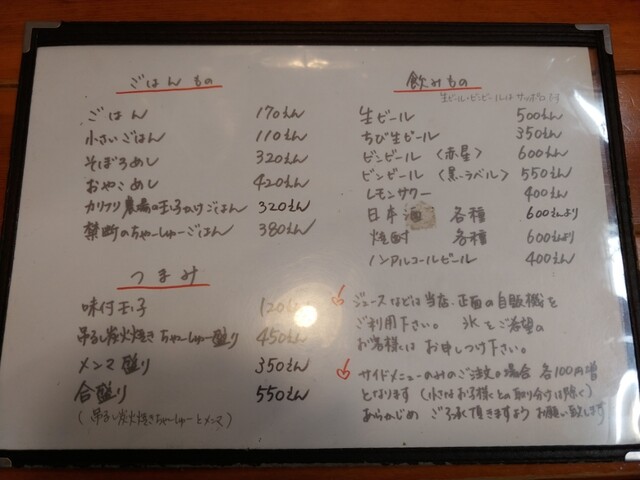 ごはんもの
ごはん 170えん
小さいごはん 110えん
そぼろめし 320えん
おやこめし 420えん
カリフリ農場の玉子かけごはん 320えん
禁断のちゃーしゅーごはん 380えん
つまみ
味付玉子 120えん
吊るし炭火焼きちゃーしゅー盛り 450えん
メンマ盛り 350えん
合盛り 550えん
(吊るし炭火焼きちゃーしゅーとメンマ)
飲みもの
生ビール・ビンビールはサッポロ
生ビール 500えん
ちび生ビール 350えん
ビンビール 〈赤星〉 600えん
ビンビール 〈黒ラベル〉 550えん
レモンサワー 400えん
日本酒 各種 600えんより
焼酎 各種 600えんより
ノンアルコールビール 400えん
ジュースなどは当店、正面の自販機を
ご利用下さい。 氷をご希望の
お客様は お申しつけ下さい。
サイドメニューのみのご注文の場合 各100円増
となります (小さなお子様との取り分けは除く)
あらかじめ ご了承頂きますよう お願い致します